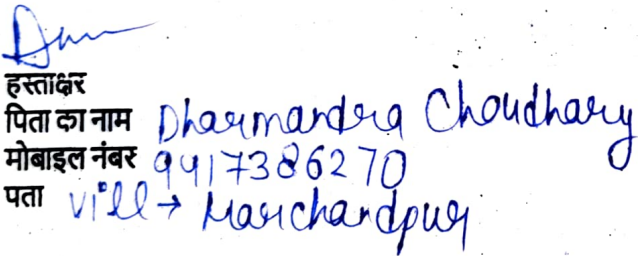 हस्ताक्षर
पिता का नाम Dharmandra Choudhary
मोबाइल नंबर 9417386270
पता Vill → Harchandpur